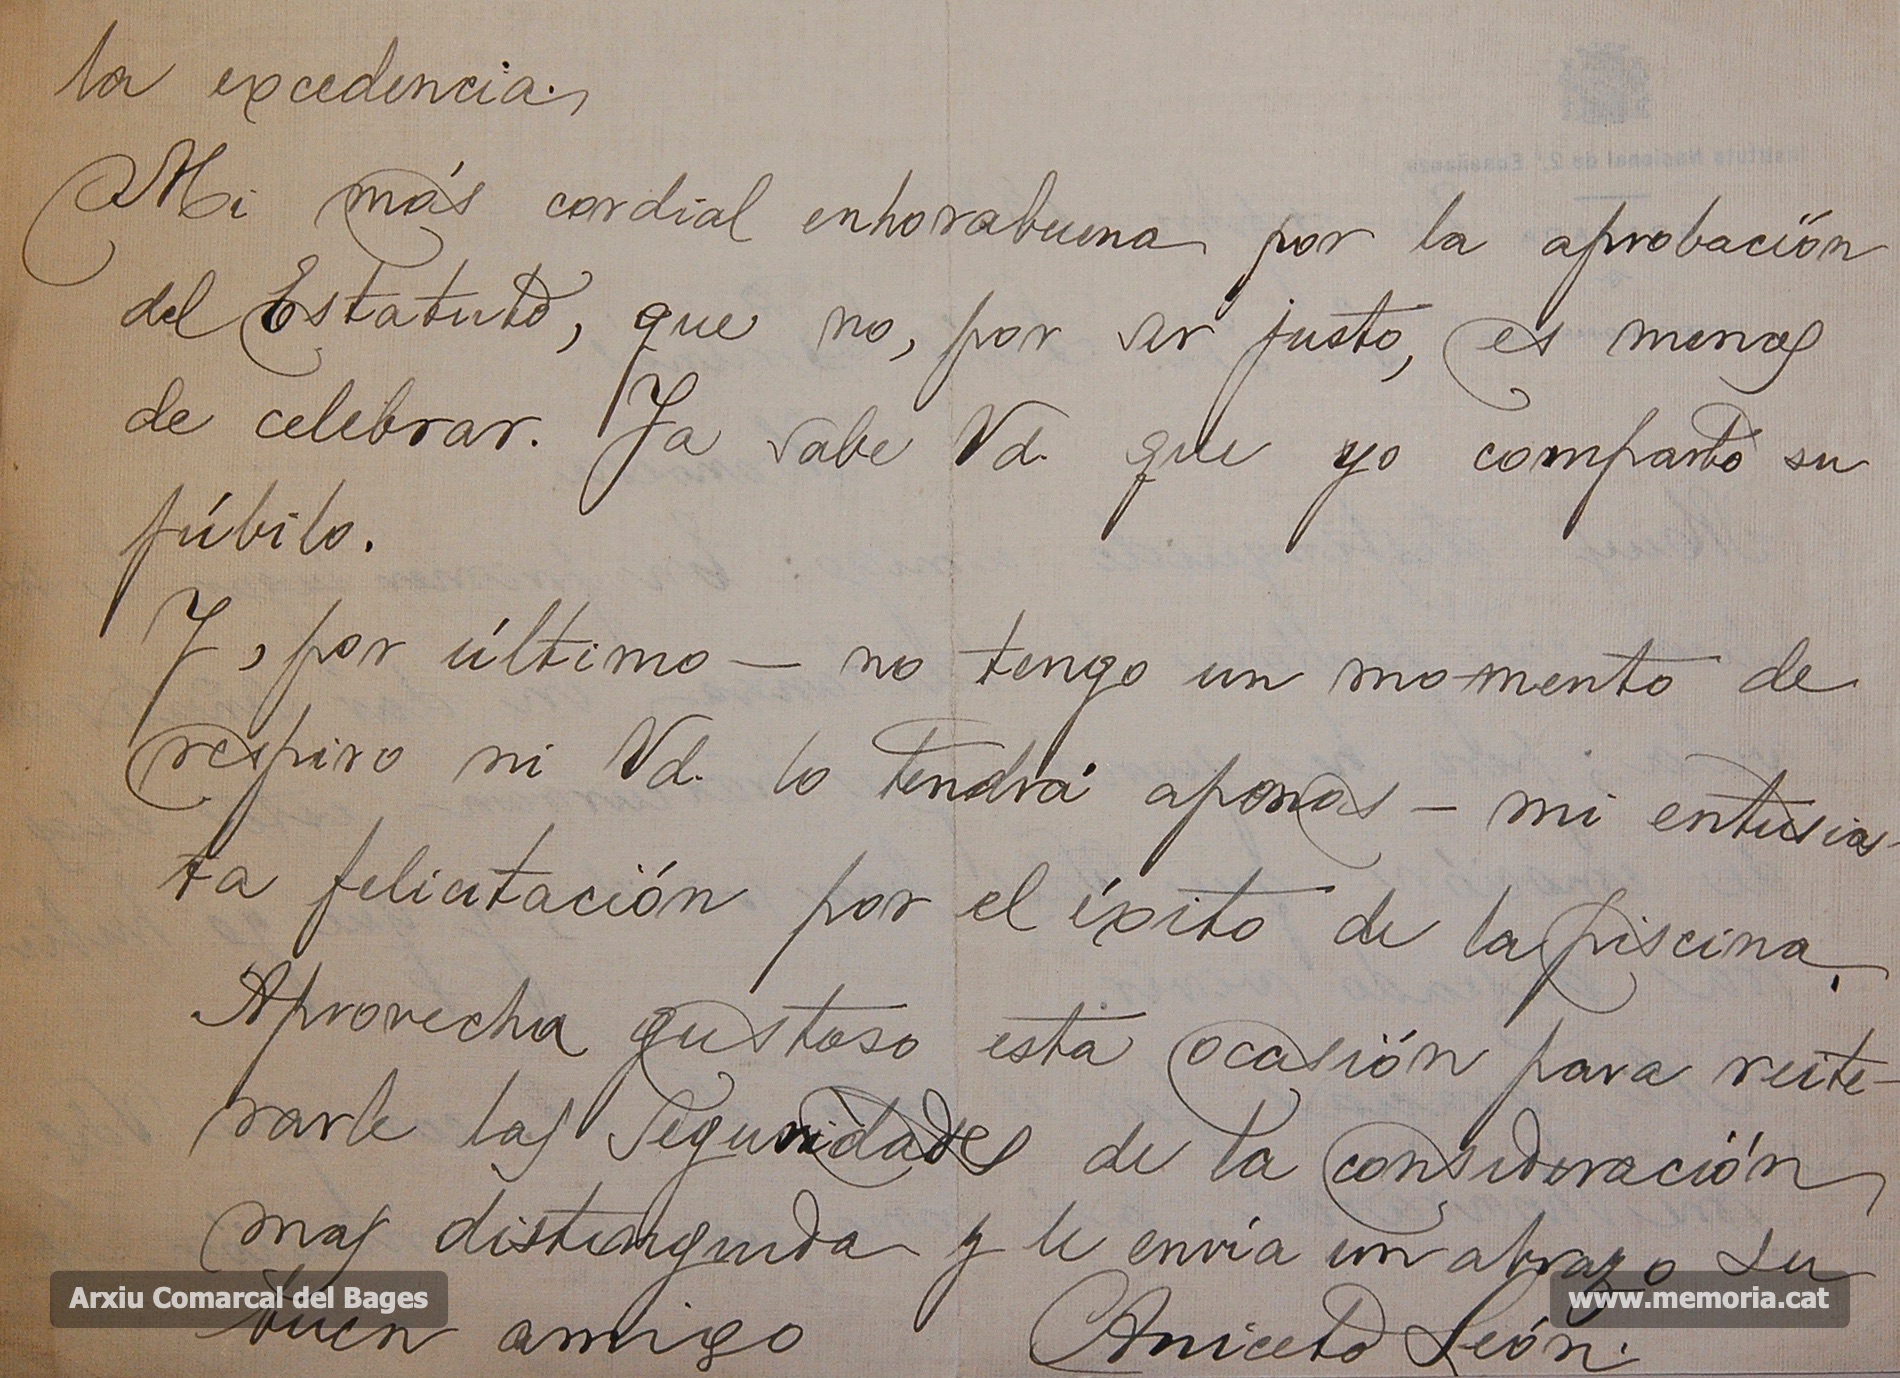 la excedencia.
Mi más cordial enhorabuena por la aprobación
del Estatuto, que no, por ser justo, es menos
de celebrar. Ya sabe Vd. que yo comparto su
júbilo.
Y, por último — no tengo un momento de
respiro ni Vd. lo tendrá apenas — mi entusias-
ta felicitación por el éxito de la piscina.
Aprovecha gustoso esta ocasión para reite-
rarle las seguridades de la consideración
mas distinguida y le envía un abrazo su
buen amigo Aniceto León.
Instituto Nacional de 2ª Enseñanza
Arxiu Comarcal del Bages
www.memoria.cat